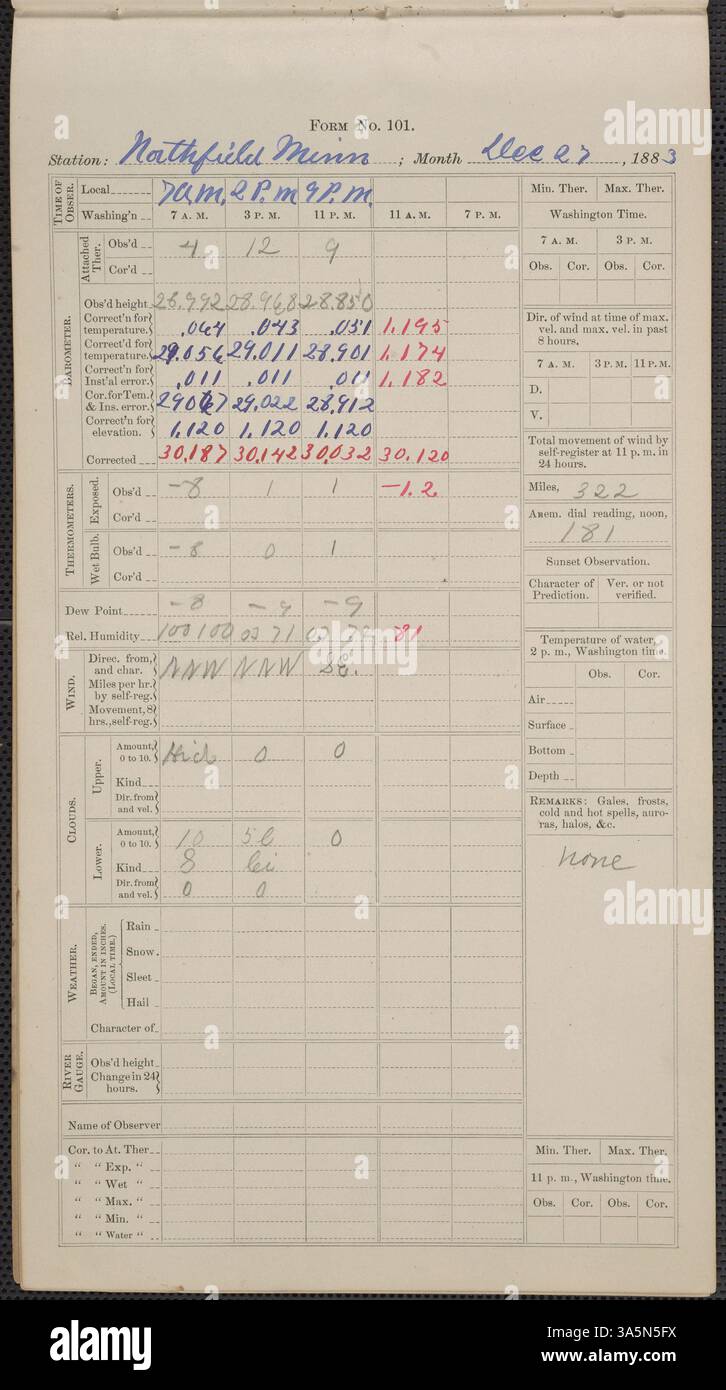 FORM No. 101.
Station: Northfield Minn ; Month Dec 27 , 1883
TIME OF OBSER.
Local 7 a.m. 2 P.m 9 P.m. Min. Ther. Max. Ther.
Washing'n 7 A. M. 3 P. M. 11 P. M. 11 A. M. 7 P. M. Washington Time.
7 A. M. 3 P. M.
Obs. Cor. Obs. Cor.
BAROMETER.
Attached Ther.
Obs'd 4 12 9
Cor'd
Obs'd height 28.992 28.968 28.850
Correct'n for temperature. .064 .043 .051 1.195
Correct'd for temperature. 29.056 29.011 28.901 1.174
Correct'n for Inst'al error. .011 .011 .011 1.182
Cor. for Tem. & Ins. error. 29.067 29.022 28.912
Correct'n for elevation. 1.120 1.120 1.120
Corrected 30.187 30.142 30.032 30.120
Dir. of wind at time of max. vel. and max. vel. in past 8 hours.
7 A. M. 3 P. M. 11 P. M.
D.
V.
Total movement of wind by self-register at 11 p. m. in 24 hours.
Miles, 322
Anem. dial reading, noon,
181
THERMOMETERS.
Exposed.
Obs'd -8 1 1 -1.2
Cor'd
Wet Bulb.
Obs'd -8 0 1
Cor'd
Sunset Observation.
Character of Prediction. Ver. or not verified.
Dew Point -8 -9 -9
Rel. Humidity 100 100 71 81
Temperature of water, 2 p. m., Washington time.
Obs. Cor.
Air
Surface
Bottom
Depth
WIND.
Direc. from, and char. NNW NNW SE.
Miles per hr. by self-reg.
Movement, 8 hrs., self-reg.
CLOUDS.
Upper.
Amount, 0 to 10. Hid 0 0
Kind
Dir. from and vel.
Lower.
Amount, 0 to 10. 10 0
Kind
Dir. from and vel. 0 0
REMARKS: Gales, frosts, cold and hot spells, auroras, halos, &c.
none
WEATHER.
BEGAN, ENDED, AMOUNT IN INCHES. (LOCAL TIME.)
Rain
Snow
Sleet
Hail
Character of
RIVER GAUGE.
Obs'd height
Change in 24 hours.
Name of Observer
Cor. to At. Ther. Min. Ther. Max. Ther.
“ “ Exp. “ 11 p. m., Washington time.
“ “ Wet “ Obs. Cor. Obs. Cor.
“ “ Max. “
“ “ Min. “
“ “ Water “
alamy
alamy
alamy
alamy
Image ID: 3A5N5FX
www.alamy.com